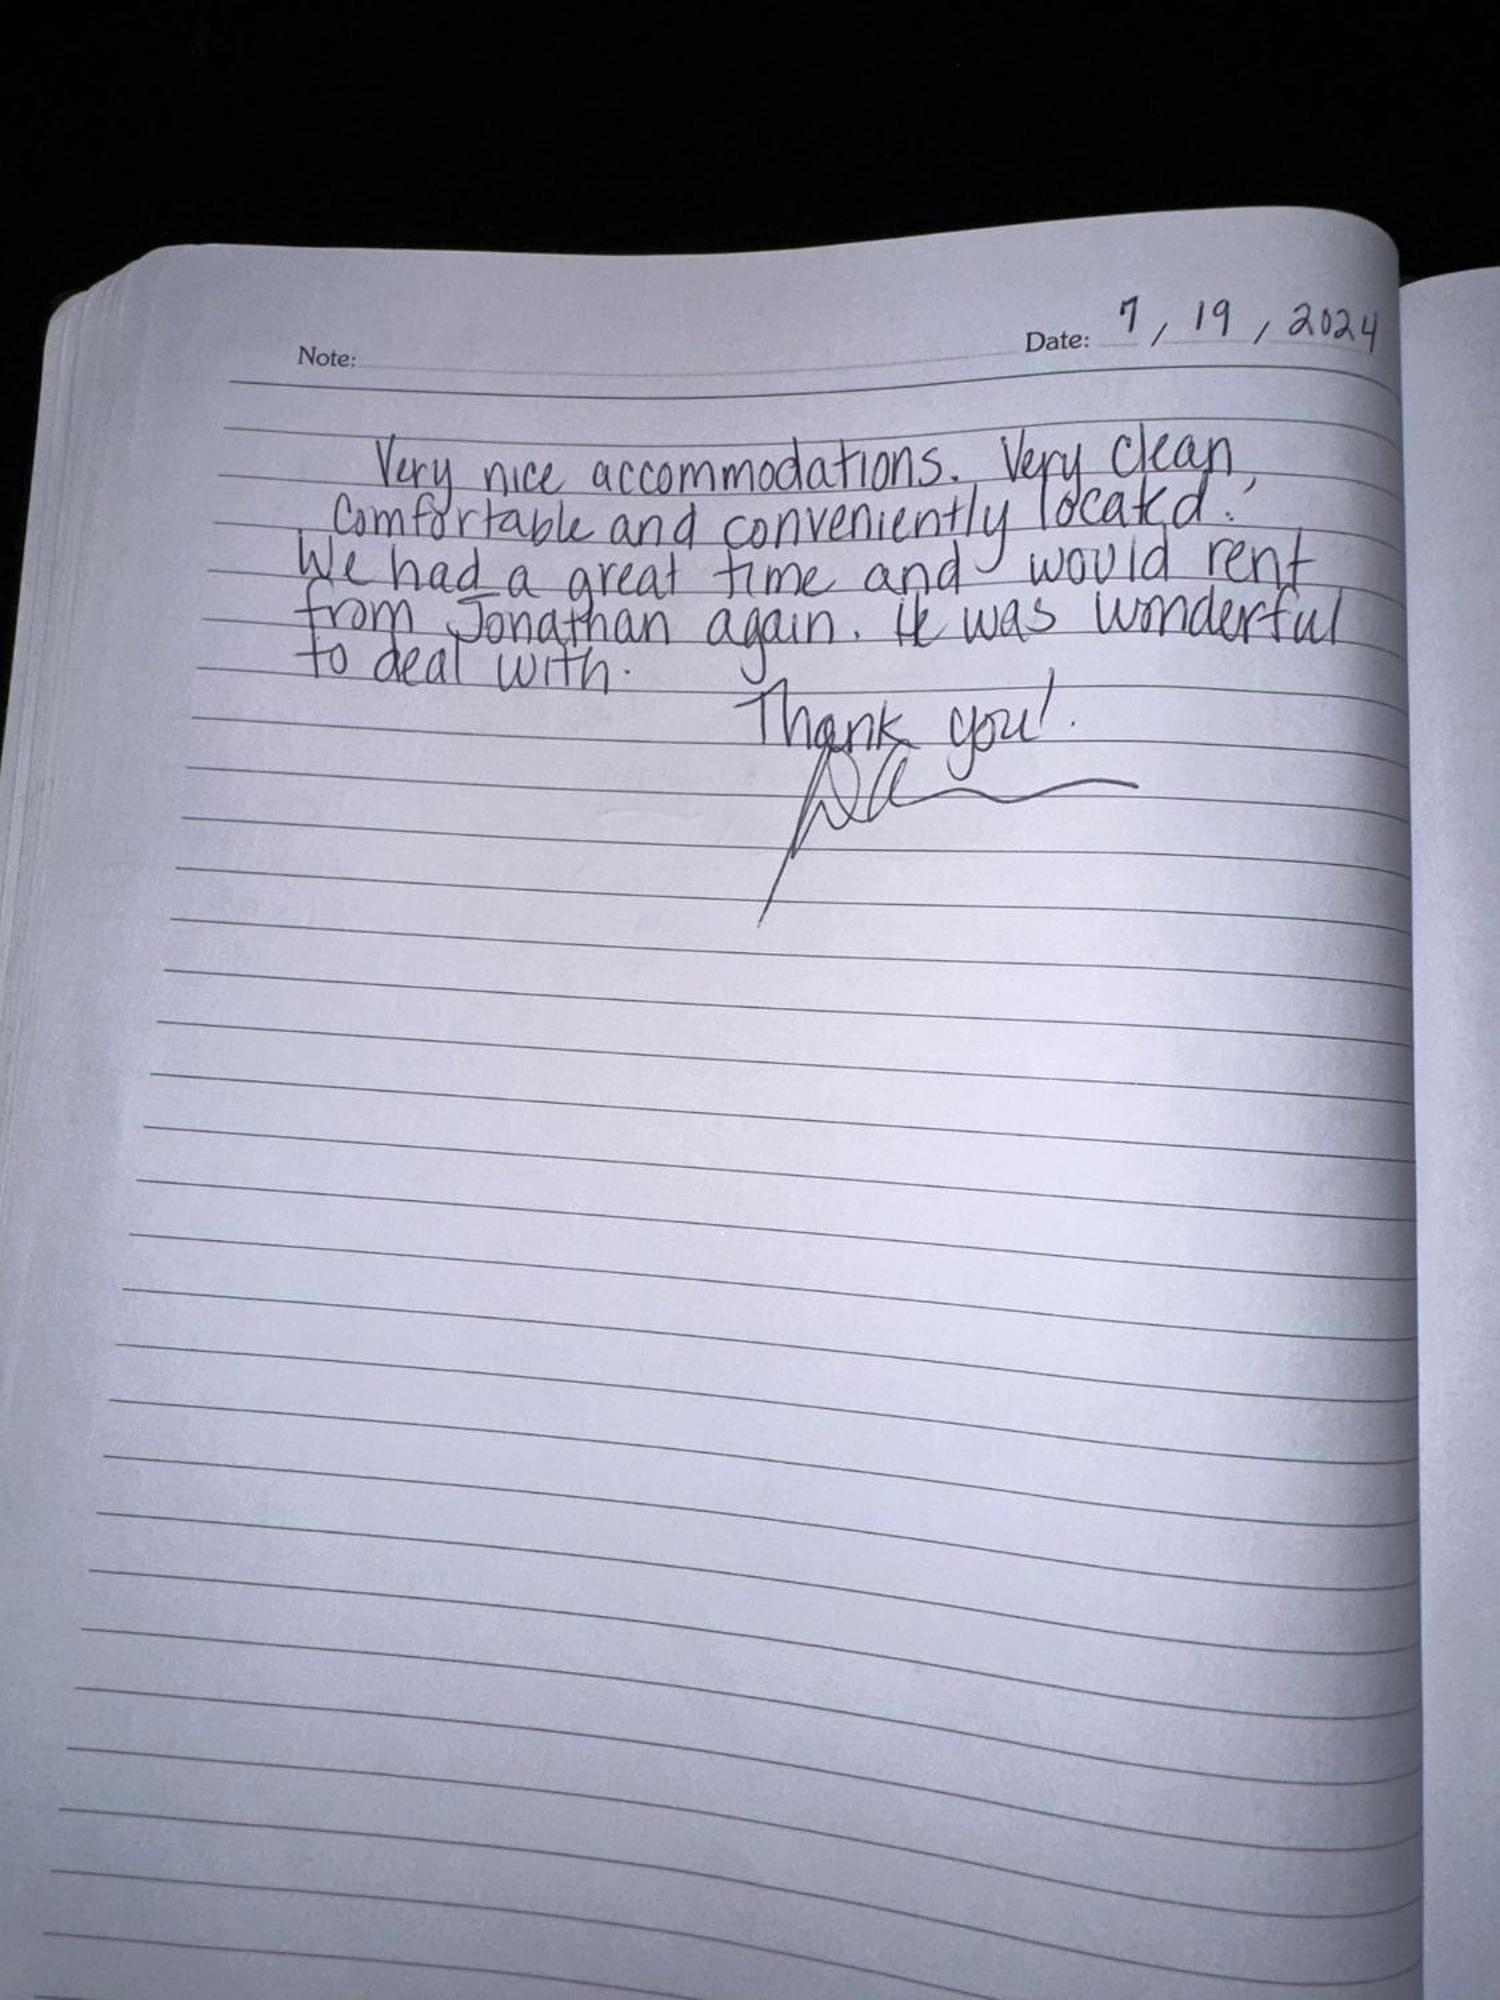 Note: Date: 7, 19, 2024
Very nice accommodations. Very clean,
Comfortable and conveniently located.
We had a great time and would rent
from Jonathan again. He was wonderful
to deal with.
Thank you!